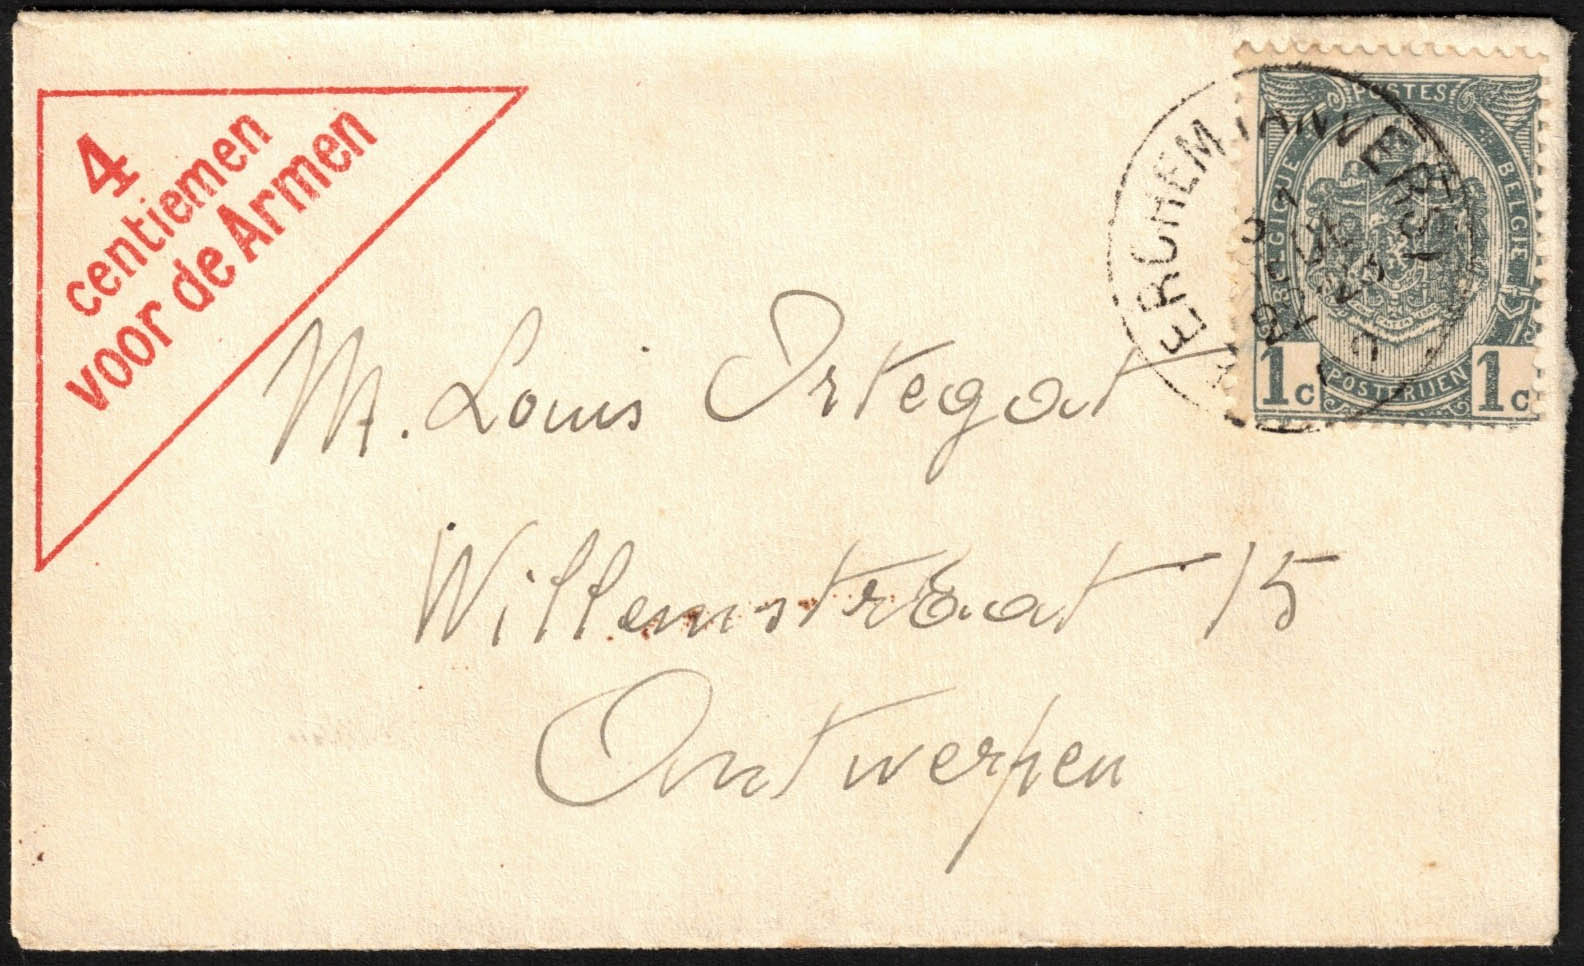 4
centiemen
voor de Armen
BERCHEM (ANVERS)
POSTES
BELGIQUE
BELGIE
1c
POSTERIJEN
1c
M. Louis Ortegat
Willemstraat 15
Antwerpen